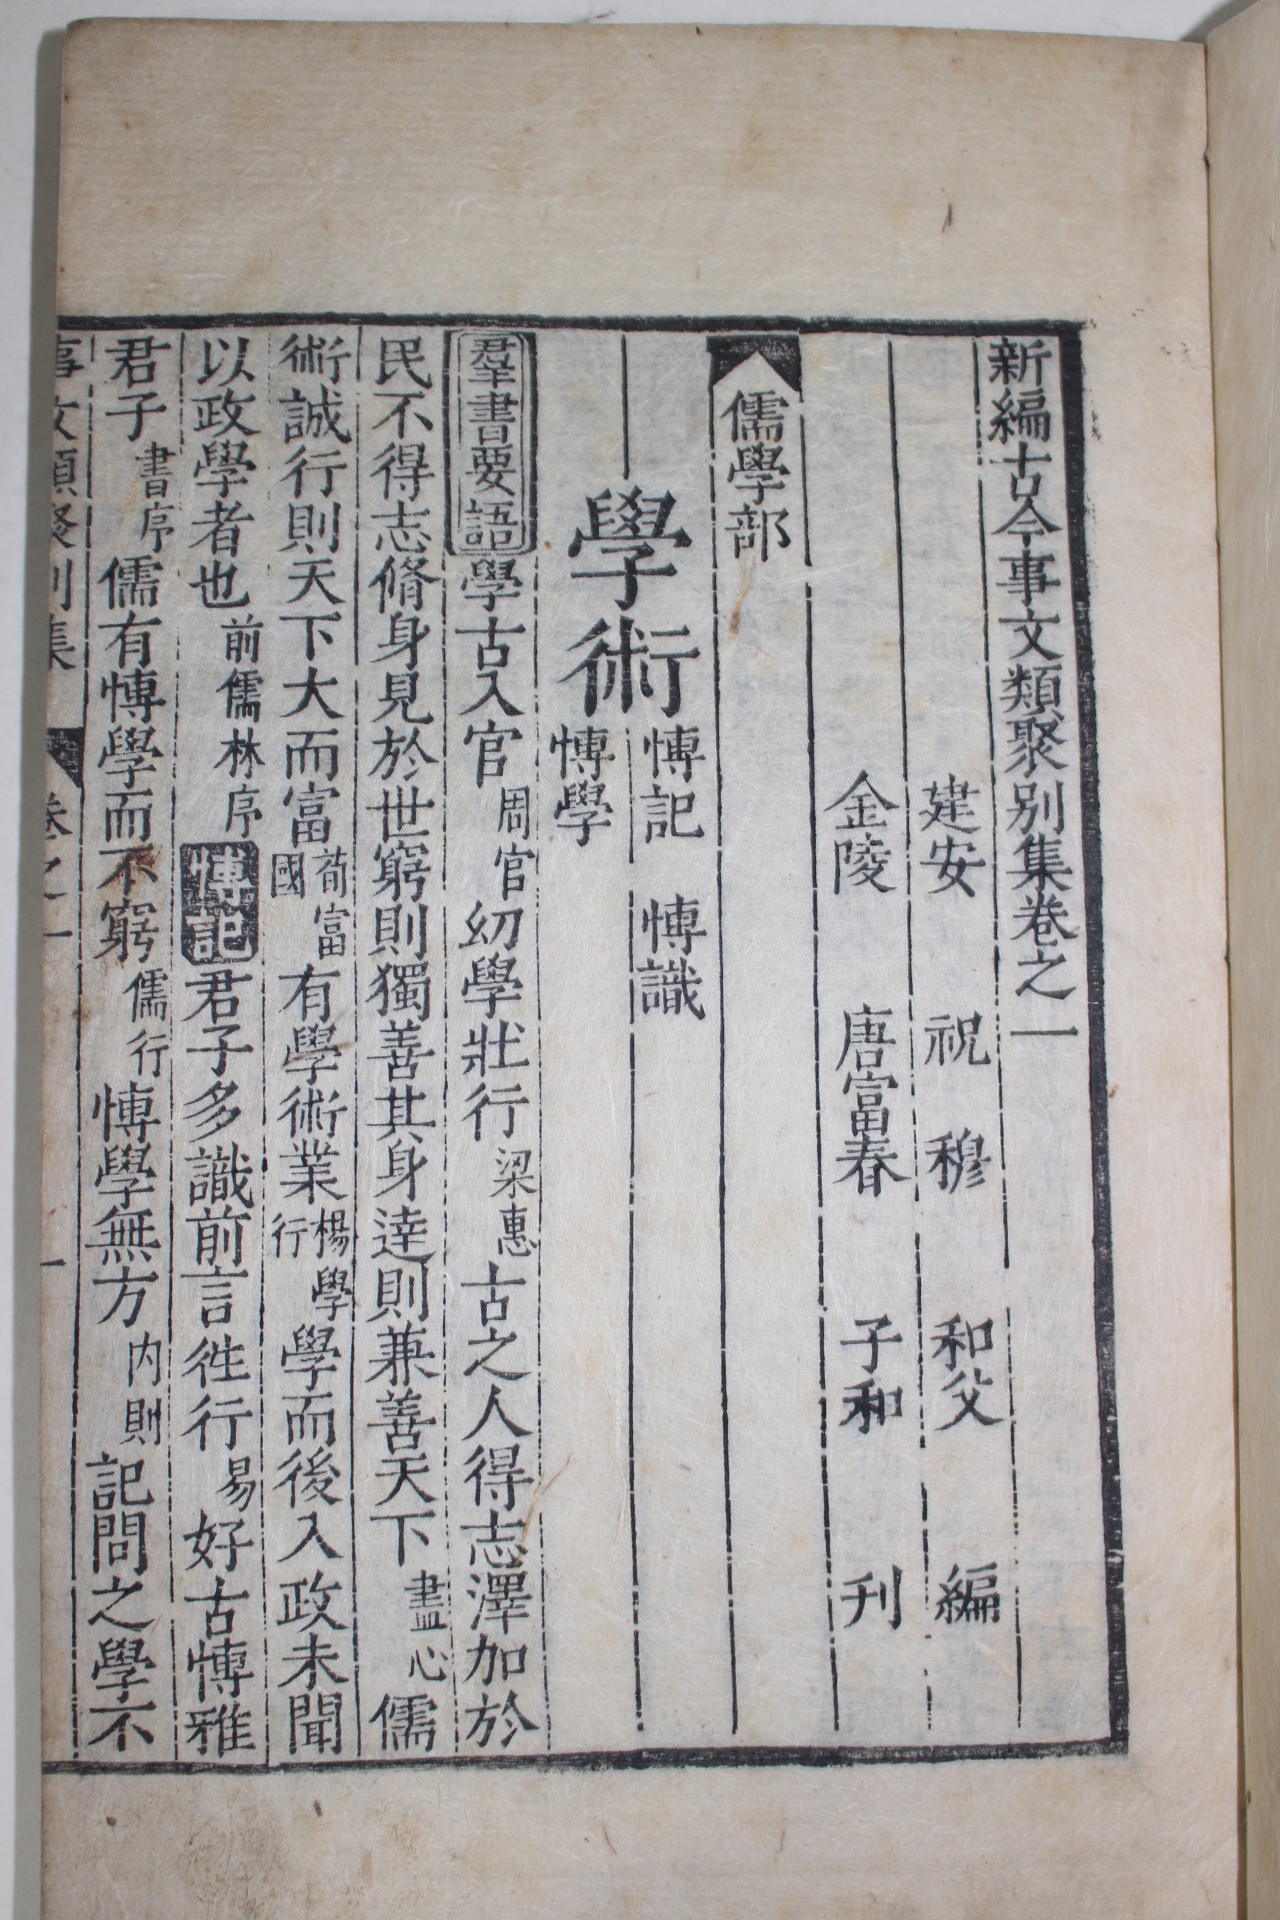 新編古今事文類聚别集卷之一
建安 祝 穆 和父 編
金陵 唐富春 子和 刊
儒學部
學術 愽記 愽識
愽學
羣書要語 學古入官 周官 幼學壯行 梁惠 古之人得志澤加於
民不得志脩身見於世窮則獨善其身逹則兼善天下 盡心 儒
術誠行則天下大而富 荀富國 有學術業 楊學行 學而後入政未聞
以政學者也 前儒林序 愽記 君子多識前言徃行 易 好古愽雅
君子 書序 儒有愽學而不窮 儒行 愽學無方 内則 記問之學不
事文類聚别集 卷之一 一